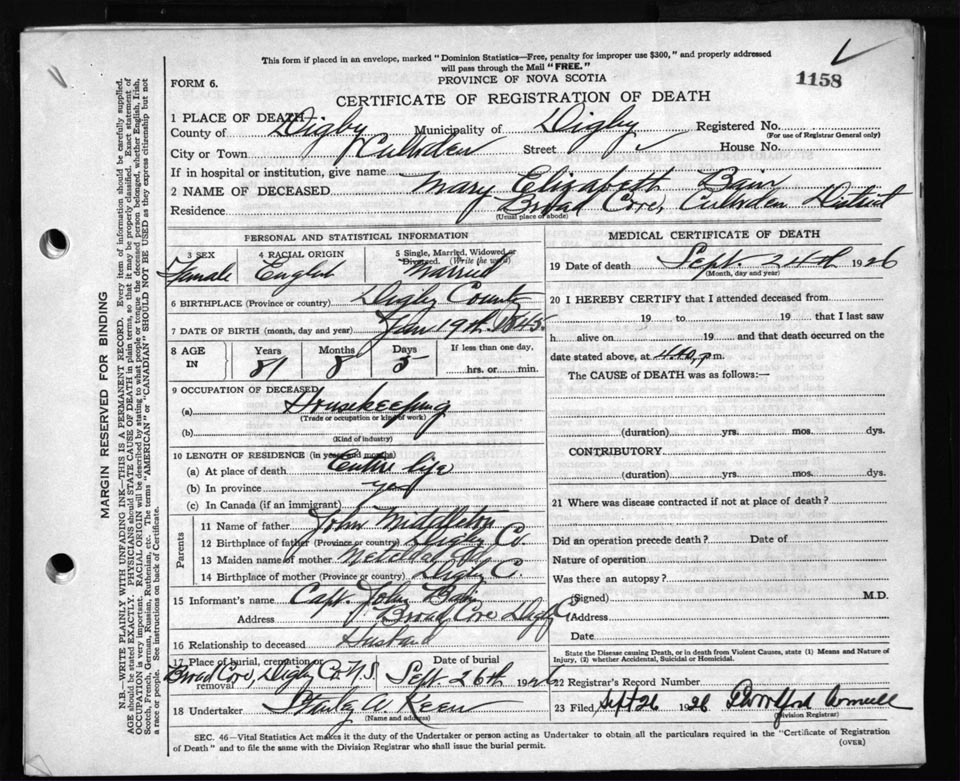 This form if placed in an envelope, marked "Dominion Statistics—Free, penalty for improper use $300," and properly addressed
will pass through the Mail "FREE."
FORM 6.
PROVINCE OF NOVA SCOTIA
1158
CERTIFICATE OF REGISTRATION OF DEATH
1 PLACE OF DEATH
County of Digby Municipality of Digby Registered No.
(For use of Registrar General only)
City or Town Culloden Street House No.
If in hospital or institution, give name
2 NAME OF DECEASED Mary Elizabeth Bain
Residence Broad Cove, Culloden District
(Usual place of abode)
PERSONAL AND STATISTICAL INFORMATION
3 SEX 4 RACIAL ORIGIN 5 Single, Married, Widowed or Divorced. (Write the word)
Female English Married
6 BIRTHPLACE (Province or country) Digby County
7 DATE OF BIRTH (month, day and year) Jan 19th. 1845.
8 AGE IN Years Months Days If less than one day,
81 8 5 hrs. or min.
9 OCCUPATION OF DECEASED
(a) Housekeeping
(Trade or occupation or kind of work)
(b)
(Kind of industry)
10 LENGTH OF RESIDENCE (in years and months)
(a) At place of death Entire life
(b) In province yes
(c) In Canada (if an immigrant)
Parents
11 Name of father John Middleton
12 Birthplace of father (Province or country) Digby Co.
13 Maiden name of mother
14 Birthplace of mother (Province or country) Digby C.
15 Informant's name Capt. John Bain
Address Broad Cove Digby
16 Relationship to deceased Husband
17 Place of burial, cremation or removal Date of burial
Broad Cove, Digby Co. N.S. Sept. 26th 1926
18 Undertaker Stanley A. Keen
(Name and address)
MEDICAL CERTIFICATE OF DEATH
19 Date of death Sept. 24th 1926
(Month, day and year)
20 I HEREBY CERTIFY that I attended deceased from
19 to 19 that I last saw
h alive on 19 and that death occurred on the
date stated above, at 4.10, p.m.
The CAUSE of DEATH was as follows:—
(duration) yrs. mos. dys.
CONTRIBUTORY
(duration) yrs. mos. dys.
21 Where was disease contracted if not at place of death?
Did an operation precede death? Date of
Nature of operation
Was there an autopsy?
(Signed) M.D.
Address
Date
State the Disease causing Death, or in death from Violent Causes, state (1) Means and Nature of
Injury, (2) whether Accidental, Suicidal or Homicidal.
22 Registrar's Record Number
23 Filed, Sept 26 1926
(Division Registrar)
SEC. 46—Vital Statistics Act makes it the duty of the Undertaker or person acting as Undertaker to obtain all the particulars required in the "Certificate of Registration
of Death" and to file the same with the Division Registrar who shall issue the burial permit.
(OVER)
MARGIN RESERVED FOR BINDING
N.B.—WRITE PLAINLY WITH UNFADING INK—THIS IS A PERMANENT RECORD. Every item of information should be carefully supplied.
AGE should be stated EXACTLY. PHYSICIANS should STATE CAUSE OF DEATH in plain terms, so that it may be properly classified. Exact statement of
OCCUPATION is very important. RACIAL ORIGIN will be described by stating to what people or tongue the deceased person belonged, whether English, Irish,
Scotch, French, German, Russian, Ruthenian, etc. The terms "AMERICAN" or "CANADIAN" SHOULD NOT BE USED as they express citizenship but not
a race or people. See instructions on back of Certificate.